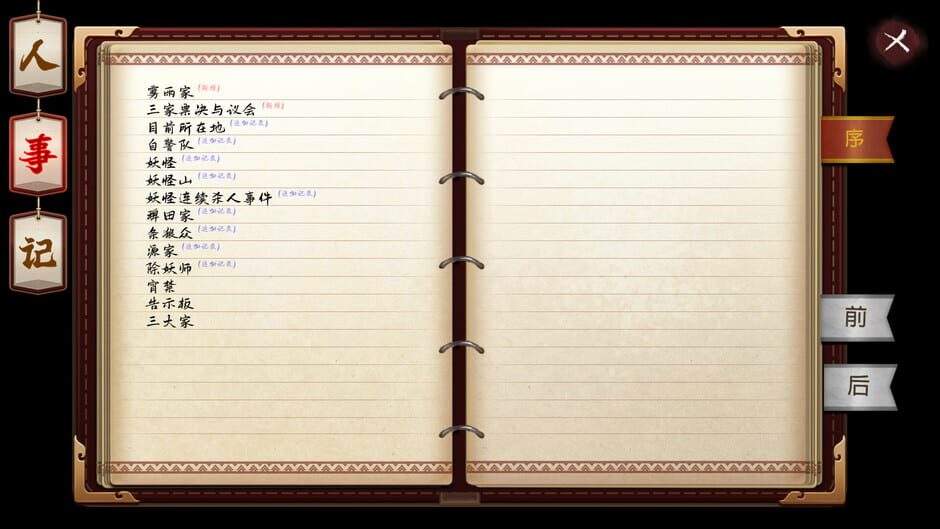 人
事
记
雾雨家(新增)
三家票决与议会(新增)
目前所在地(追加记录)
自警队(追加记录)
妖怪(追加记录)
妖怪山(追加记录)
妖怪连续杀人事件(追加记录)
稗田家(追加记录)
条狼众(追加记录)
源家(追加记录)
除妖师(追加记录)
宵禁
告示板
三大家
序
前
后